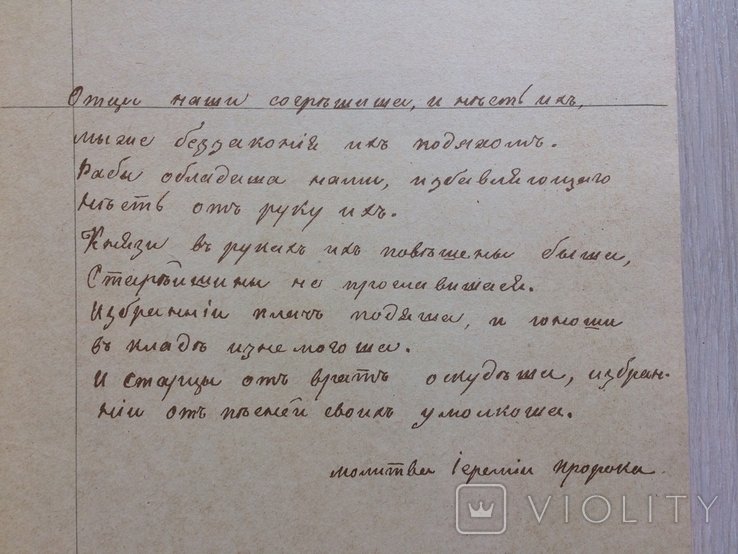 Отцы наши согрѣшиша, и нѣсть ихъ,
мы же беззаконія ихъ подяхомъ.
Рабы обладаша нами, избавляющаго
нѣсть отъ руку ихъ.
Князи въ рукахъ ихъ повѣшены быша,
Старѣйшины не прославишася.
Избранніи плачъ подяша, и юноши
въ кладѣ изнемогоша.
И старцы отъ вратъ оскудѣша, избран-
ніи отъ пѣсней своихъ умолкоша.
молитва Іереміи пророка.
VIOLITY